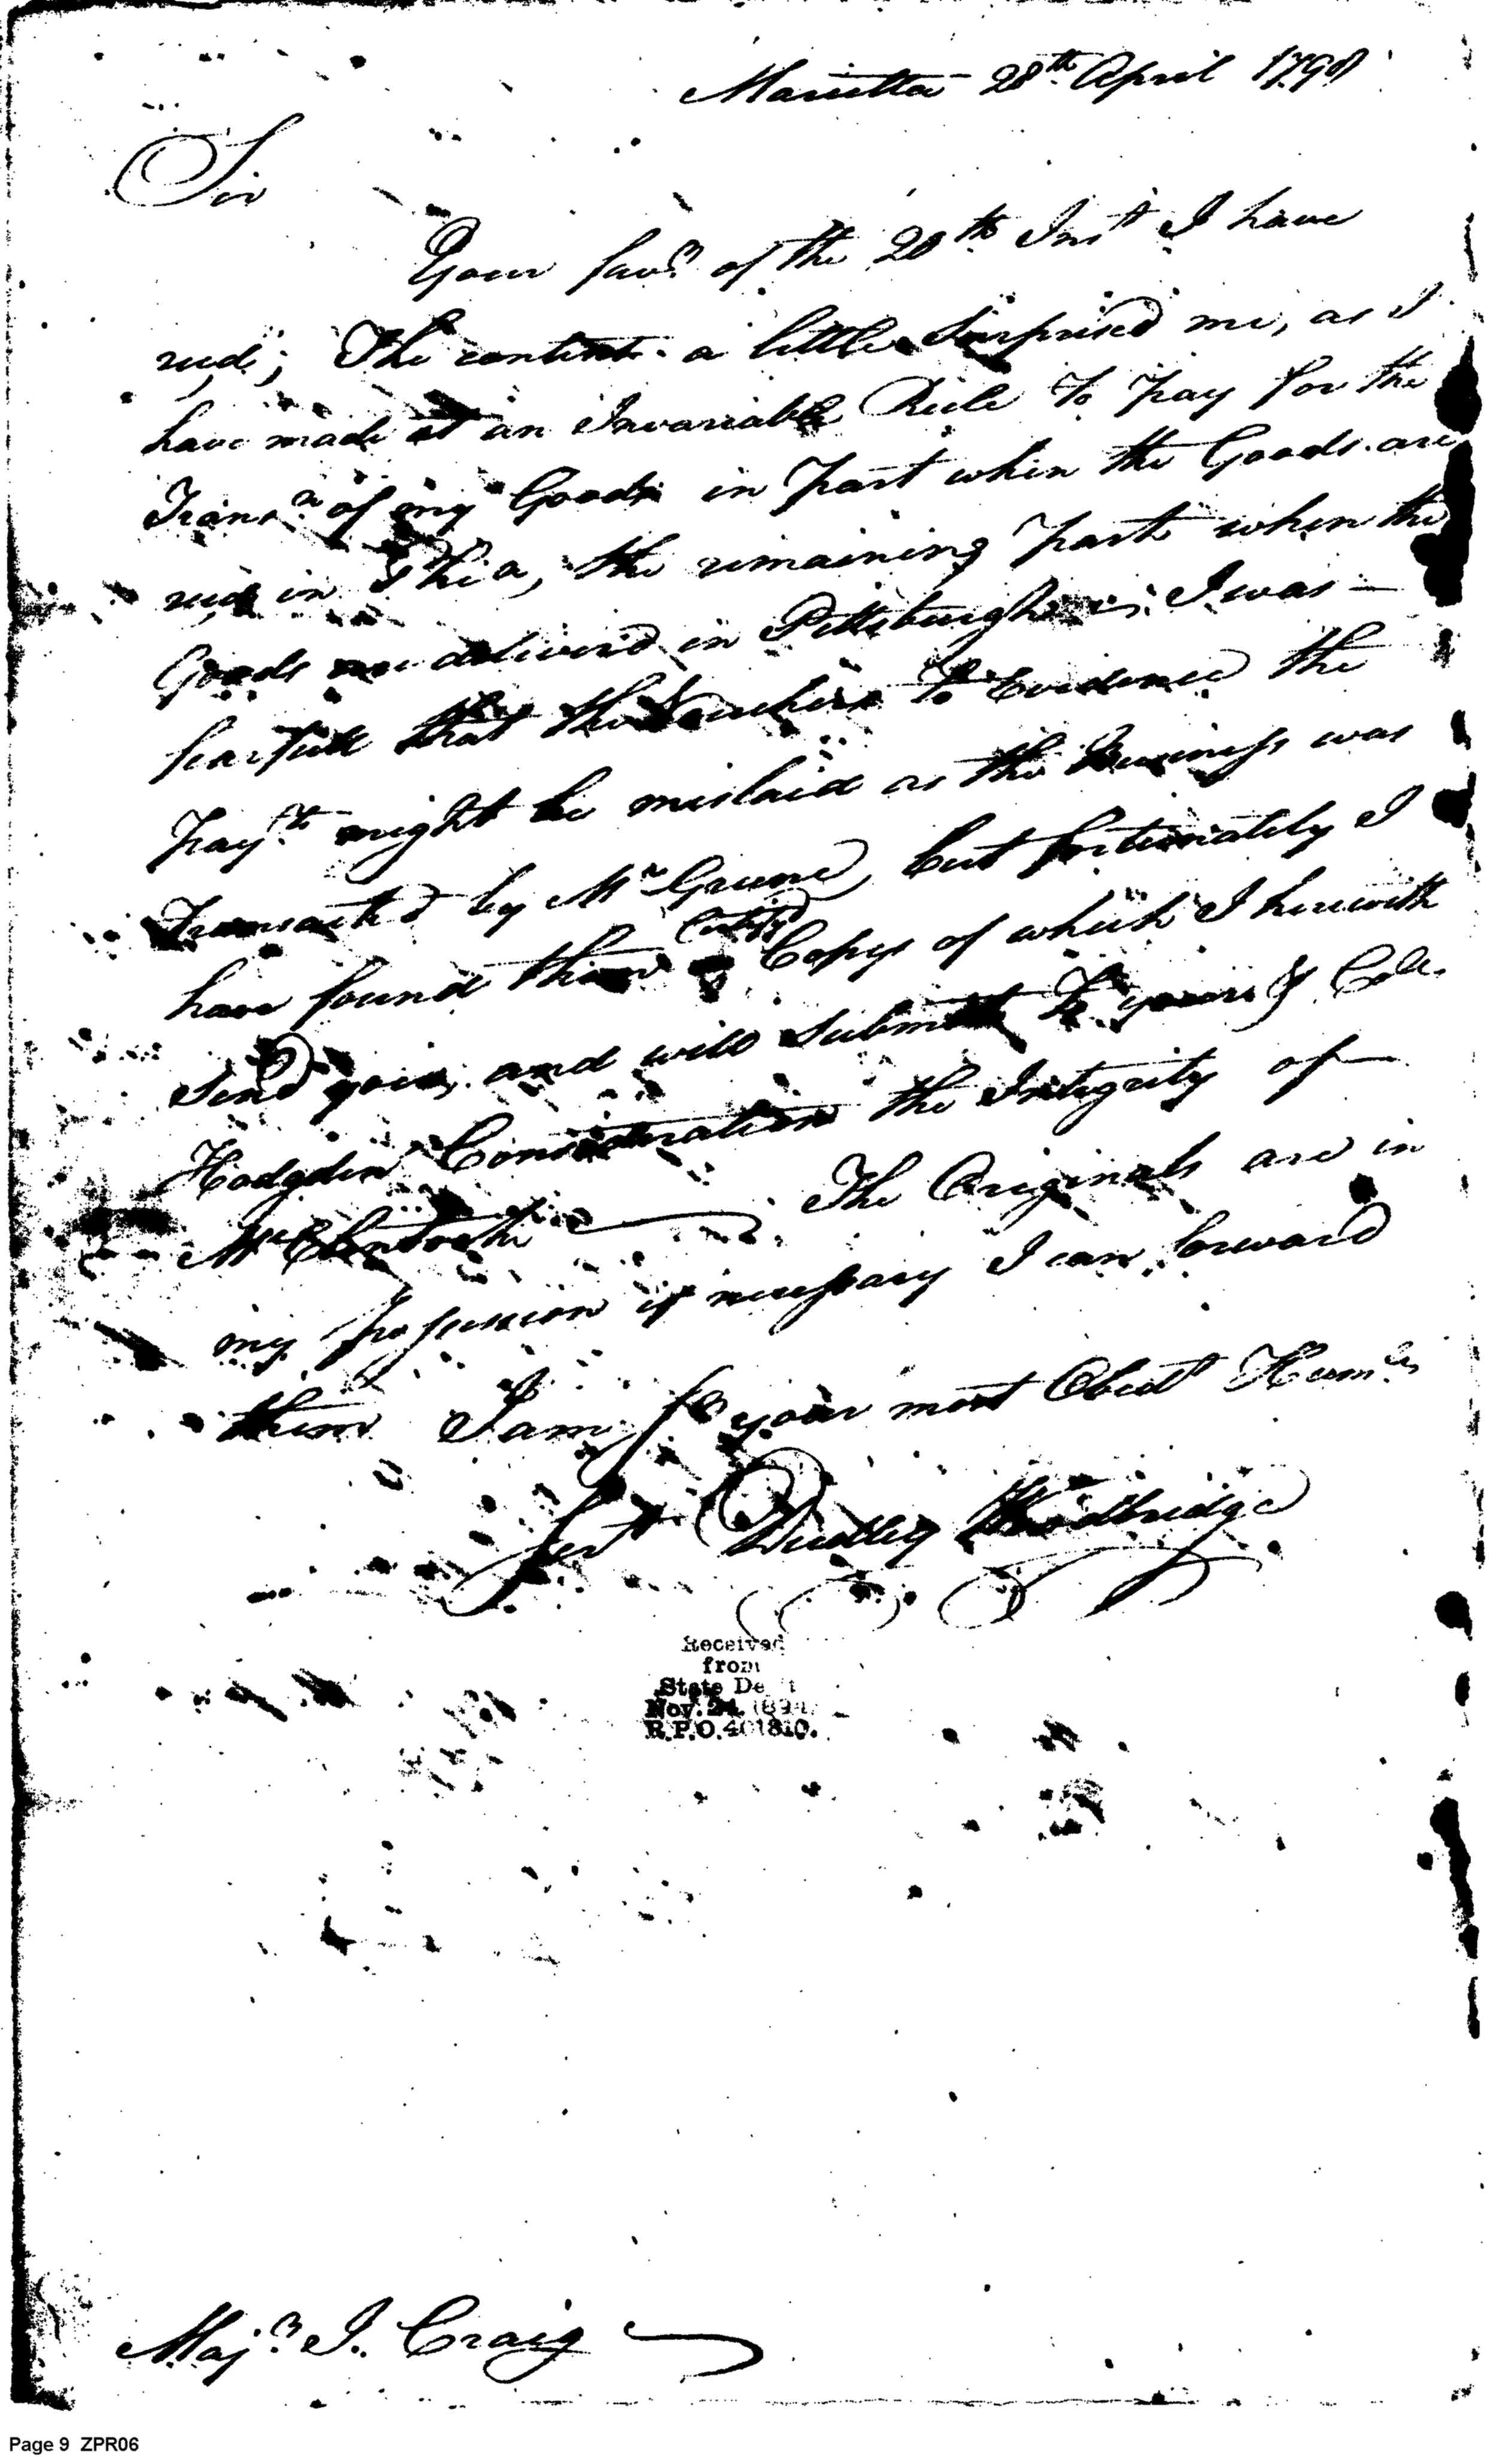 Marietta 28th April 1798
Sir
Your favr of the 20th Inst I have
recd; The contents a little Surprised me, as I
have made it an Invariable Rule to pay for the
Transn of my Goods in part when the Goods are
recd in Phia, the remaining part when the
Goods are delivered in Pittsburgh; I was
fearfull that the Vouchers to Evidence the
Payts might be mislaid as the Business was
Transacted by Mr Greene, but fortunately I
have found them Certifd Copys of which I herewith
Send you, and will Submit to yours & Col.
Hodgden Consideration the Integrity of
Mr The Originals are in
my possession if necessary I can forward
them I am your most Obedt Humle
Sert Dudley Woodbridge
Received
from
State De
Nov. 24. 1894.
R.P.O. 401810.
Majr I. Craig
Page 9 ZPR06